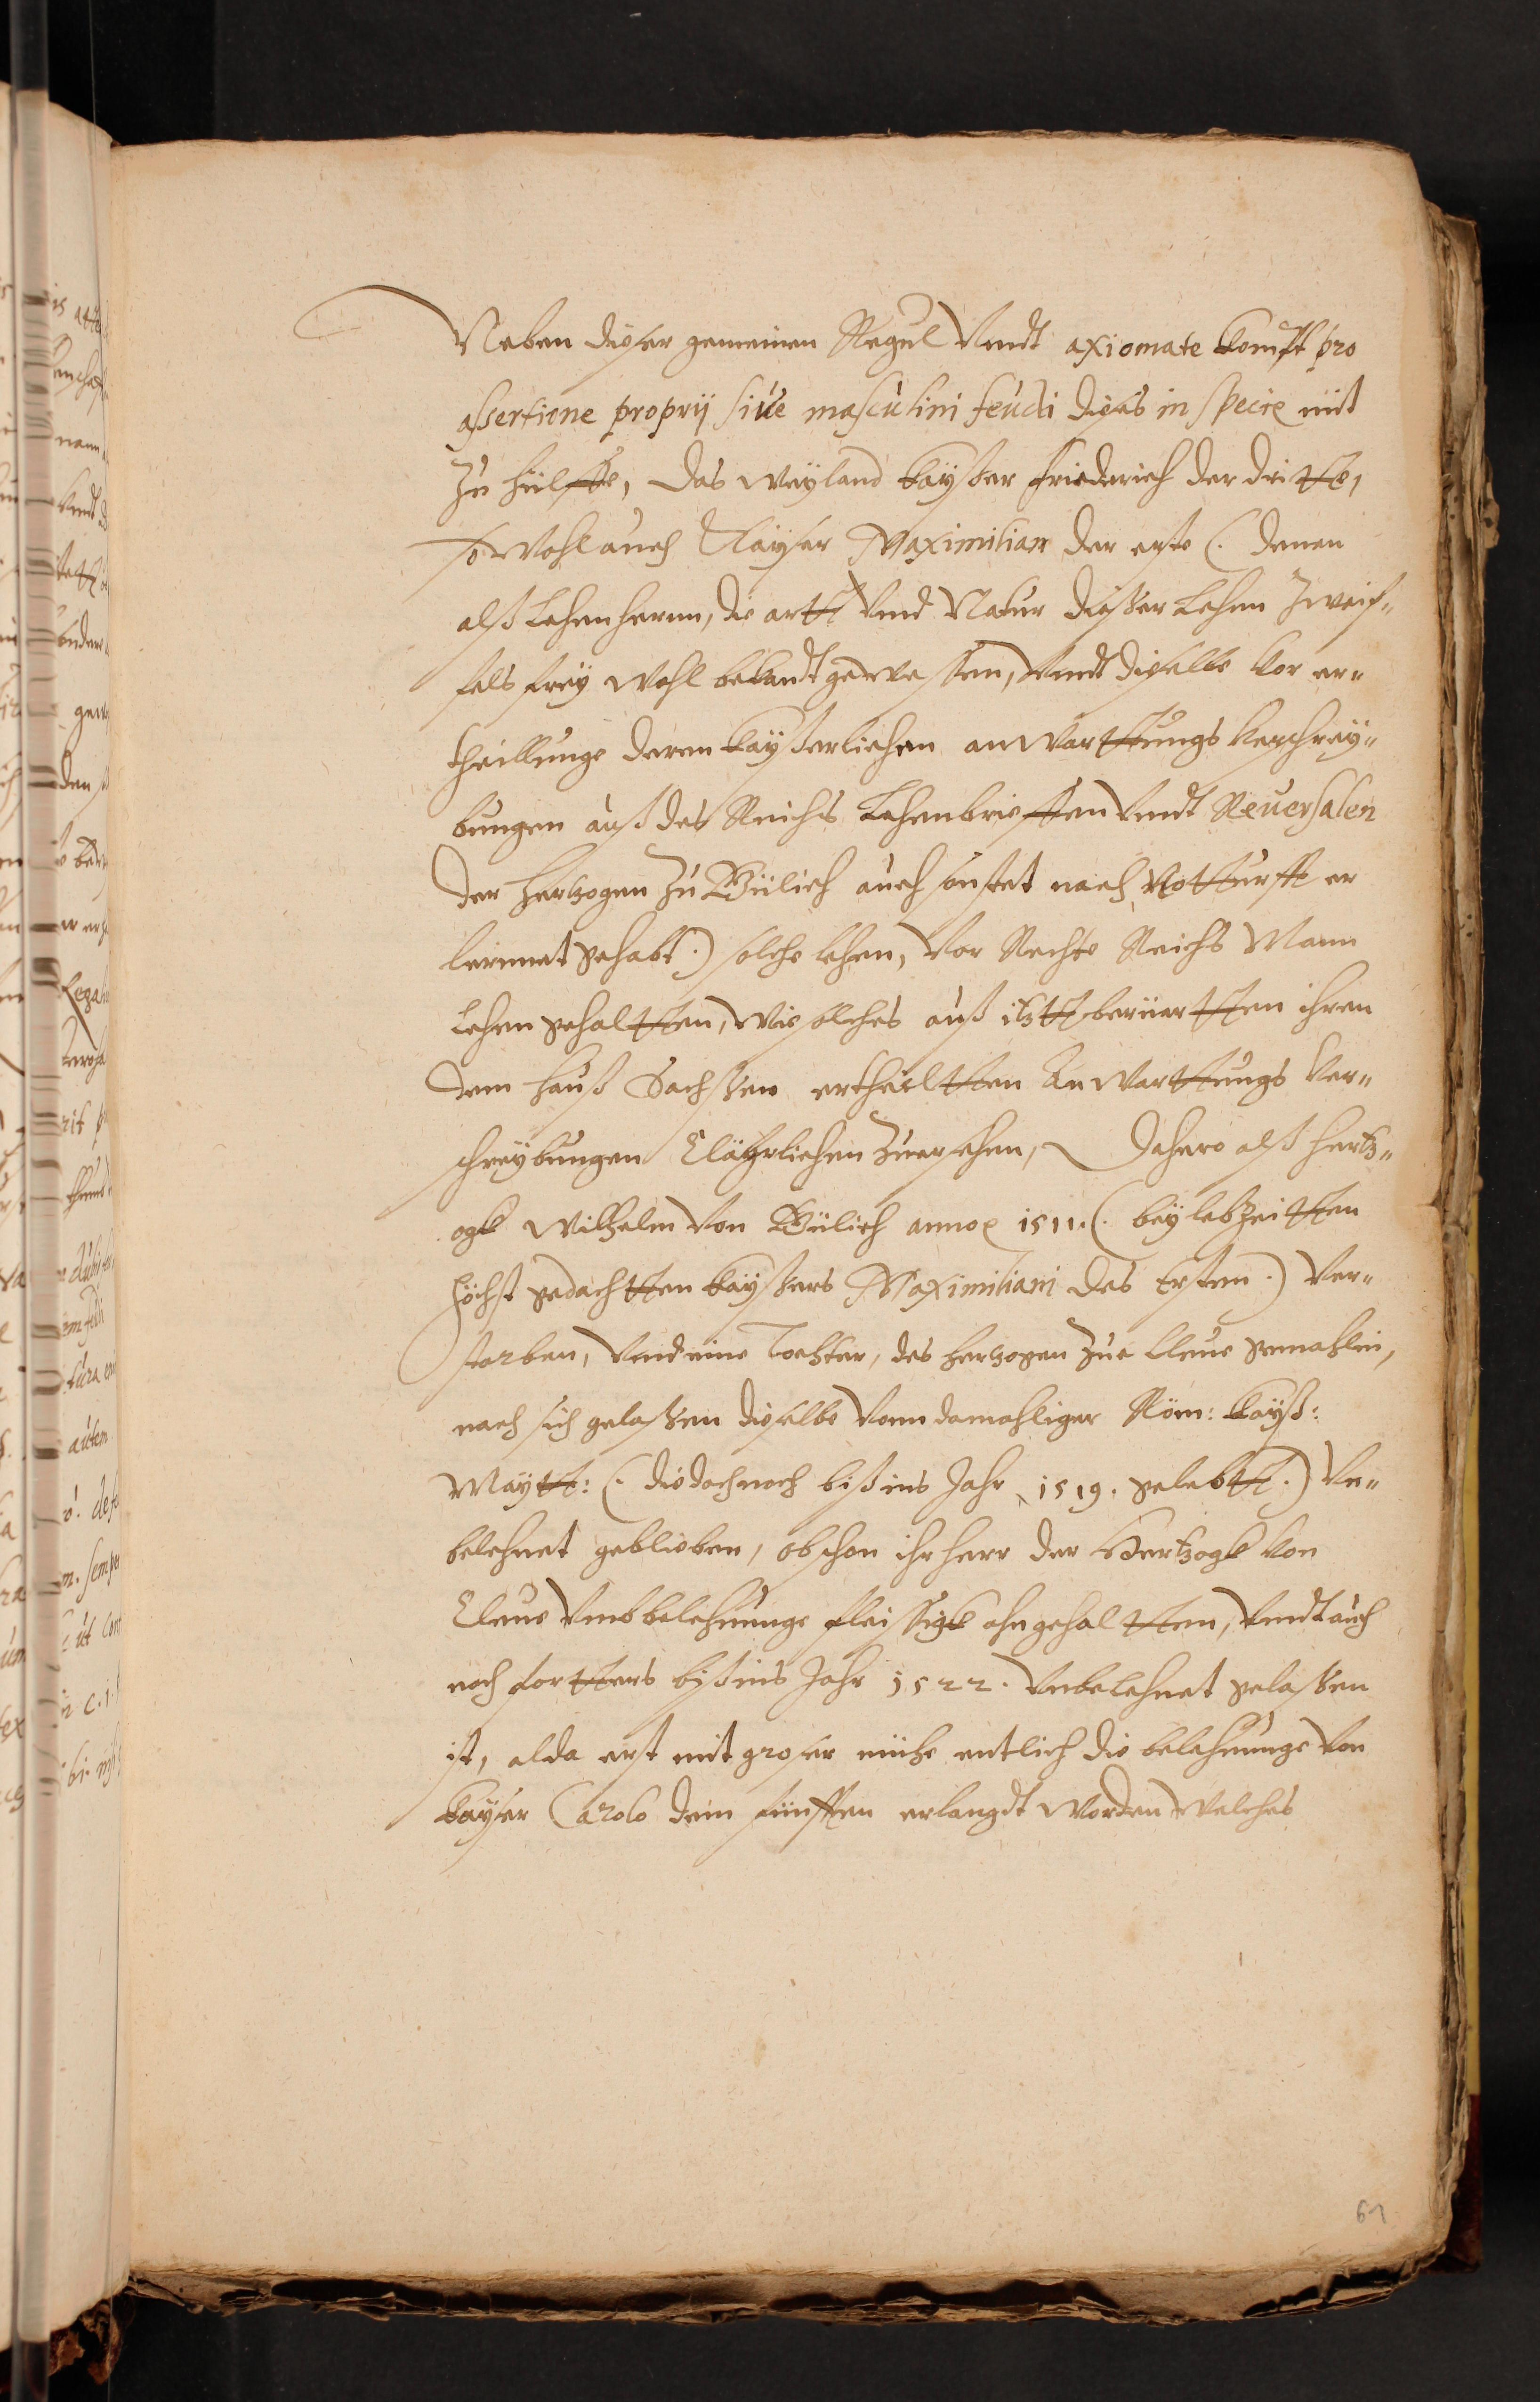 Neben dieser gemeinen Regul vndt axiomate kompt pro
assertione proprij siue masculini feudi dieses in specie mit
zu hülffe, das weyland kayßer Friederich der dritte,
so wohl auch Kayser Maximilian der erste (. denen
alß Lehenherrn, die artt vnd Natur dießer Lehen zweif„
fels frey wohl bekandt geweßen, vndt dieselbe vor er„
theillunge deren kayßerlichen anwarttungs verschrey„
bungen auß des Reichs Lehenbrieffen vndt Reuersalen
der Hertzogen zu Gülich auch sonstet nach Notturfft er
lernnet gehabt .) solche lehen, vor Rechte Reichs Mann
Lehen gehaltten, wie solches auß itztberüertten ihren
dem Hauß Sachßen ertheiltten Anwarttungs ver„
schreybungen klährlichen zuersehen, Dahero alß Hertz„
ogk Wilhelm von Gülich annoe 1511. (. bey lebzeitten
höchst gedachtten kayßers Maximiliani des Ersten .) ver„
storben, vnd eine Tochter, des Hertzogen zue Cleue gemahlin,
nach sich gelaßen dieselbe vonn damahliger Röm: kayß:
Maytt: (. die doch noch biß ins Jahr 1519. gelebtt .) vn„
belehnet geblieben, obschon ihr herr der Hertzogk von
Cleue vmb belehnunge fleissigk ahngehaltten, vndt auch
noch fortters biß ins Jahr 1522. vnbelehnet gelaßen
ist, alda erst mit groser mühe entlich die belehnunge von
kayser Carolo dem fünfften erlangdt worden welches